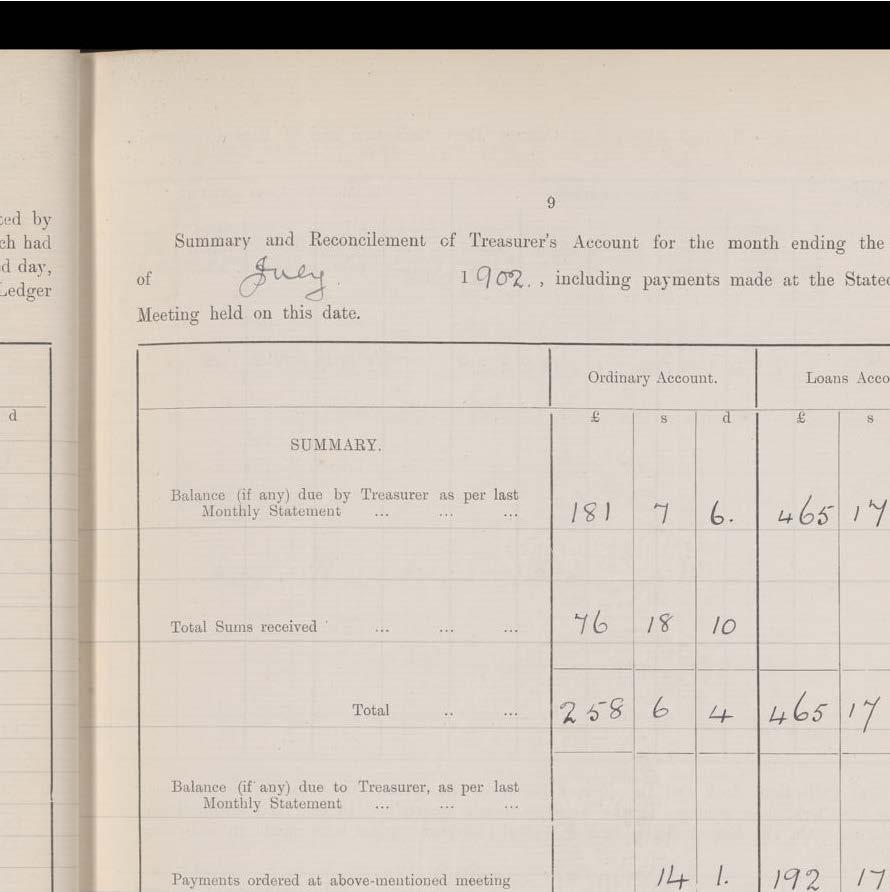 ted by
ch had
d day,
Ledger
d
9
Summary and Reconcilement of Treasurer's Account for the month ending the
of July. 1902., including payments made at the Stated
Meeting held on this date.
Ordinary Account. Loans Acco
£ s d £ s
SUMMARY.
Balance (if any) due by Treasurer as per last
Monthly Statement ... ... ... 181 7 6. 465 17
Total Sums received ... ... ... 76 18 10
Total .. ... 258 6 4 465 17
Balance (if any) due to Treasurer, as per last
Monthly Statement ... ... ...
Payments ordered at above-mentioned meeting 14 1. 192 17